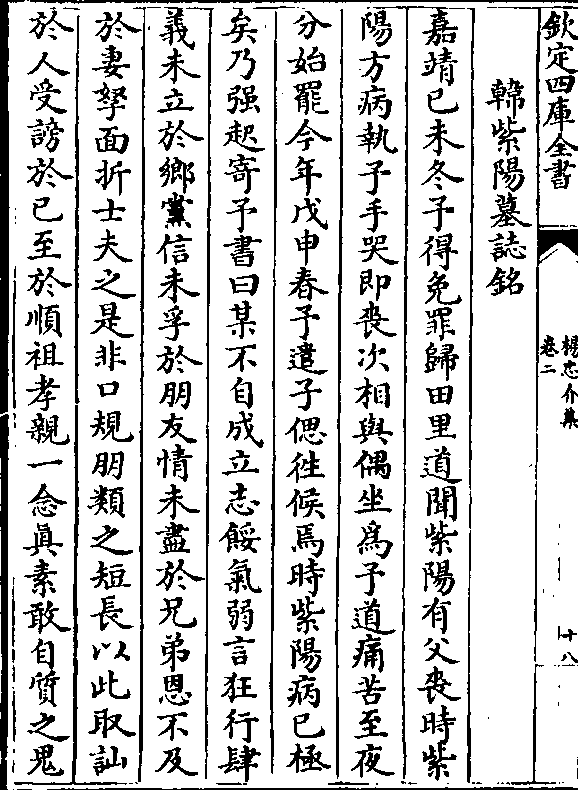 欽定四庫全書
楊忠介集
卷二
十八
韓紫陽墓誌銘
嘉靖已未冬予得免罪歸田里道聞紫陽有父喪時紫
陽方病執予手哭即喪次相與偶坐為予道痛苦至夜
分始罷今年戊申春予遣子偲徃候焉時紫陽病已極
矣乃强起寄予書曰某不自成立志餒氣弱言狂行肆
義未立於鄉黨信未孚於朋友情未盡於兄弟恩不及
於妻孥面折士夫之是非口規朋類之短長以此取訕
於人受謗於已至於順祖孝親一念眞素敢自質之鬼